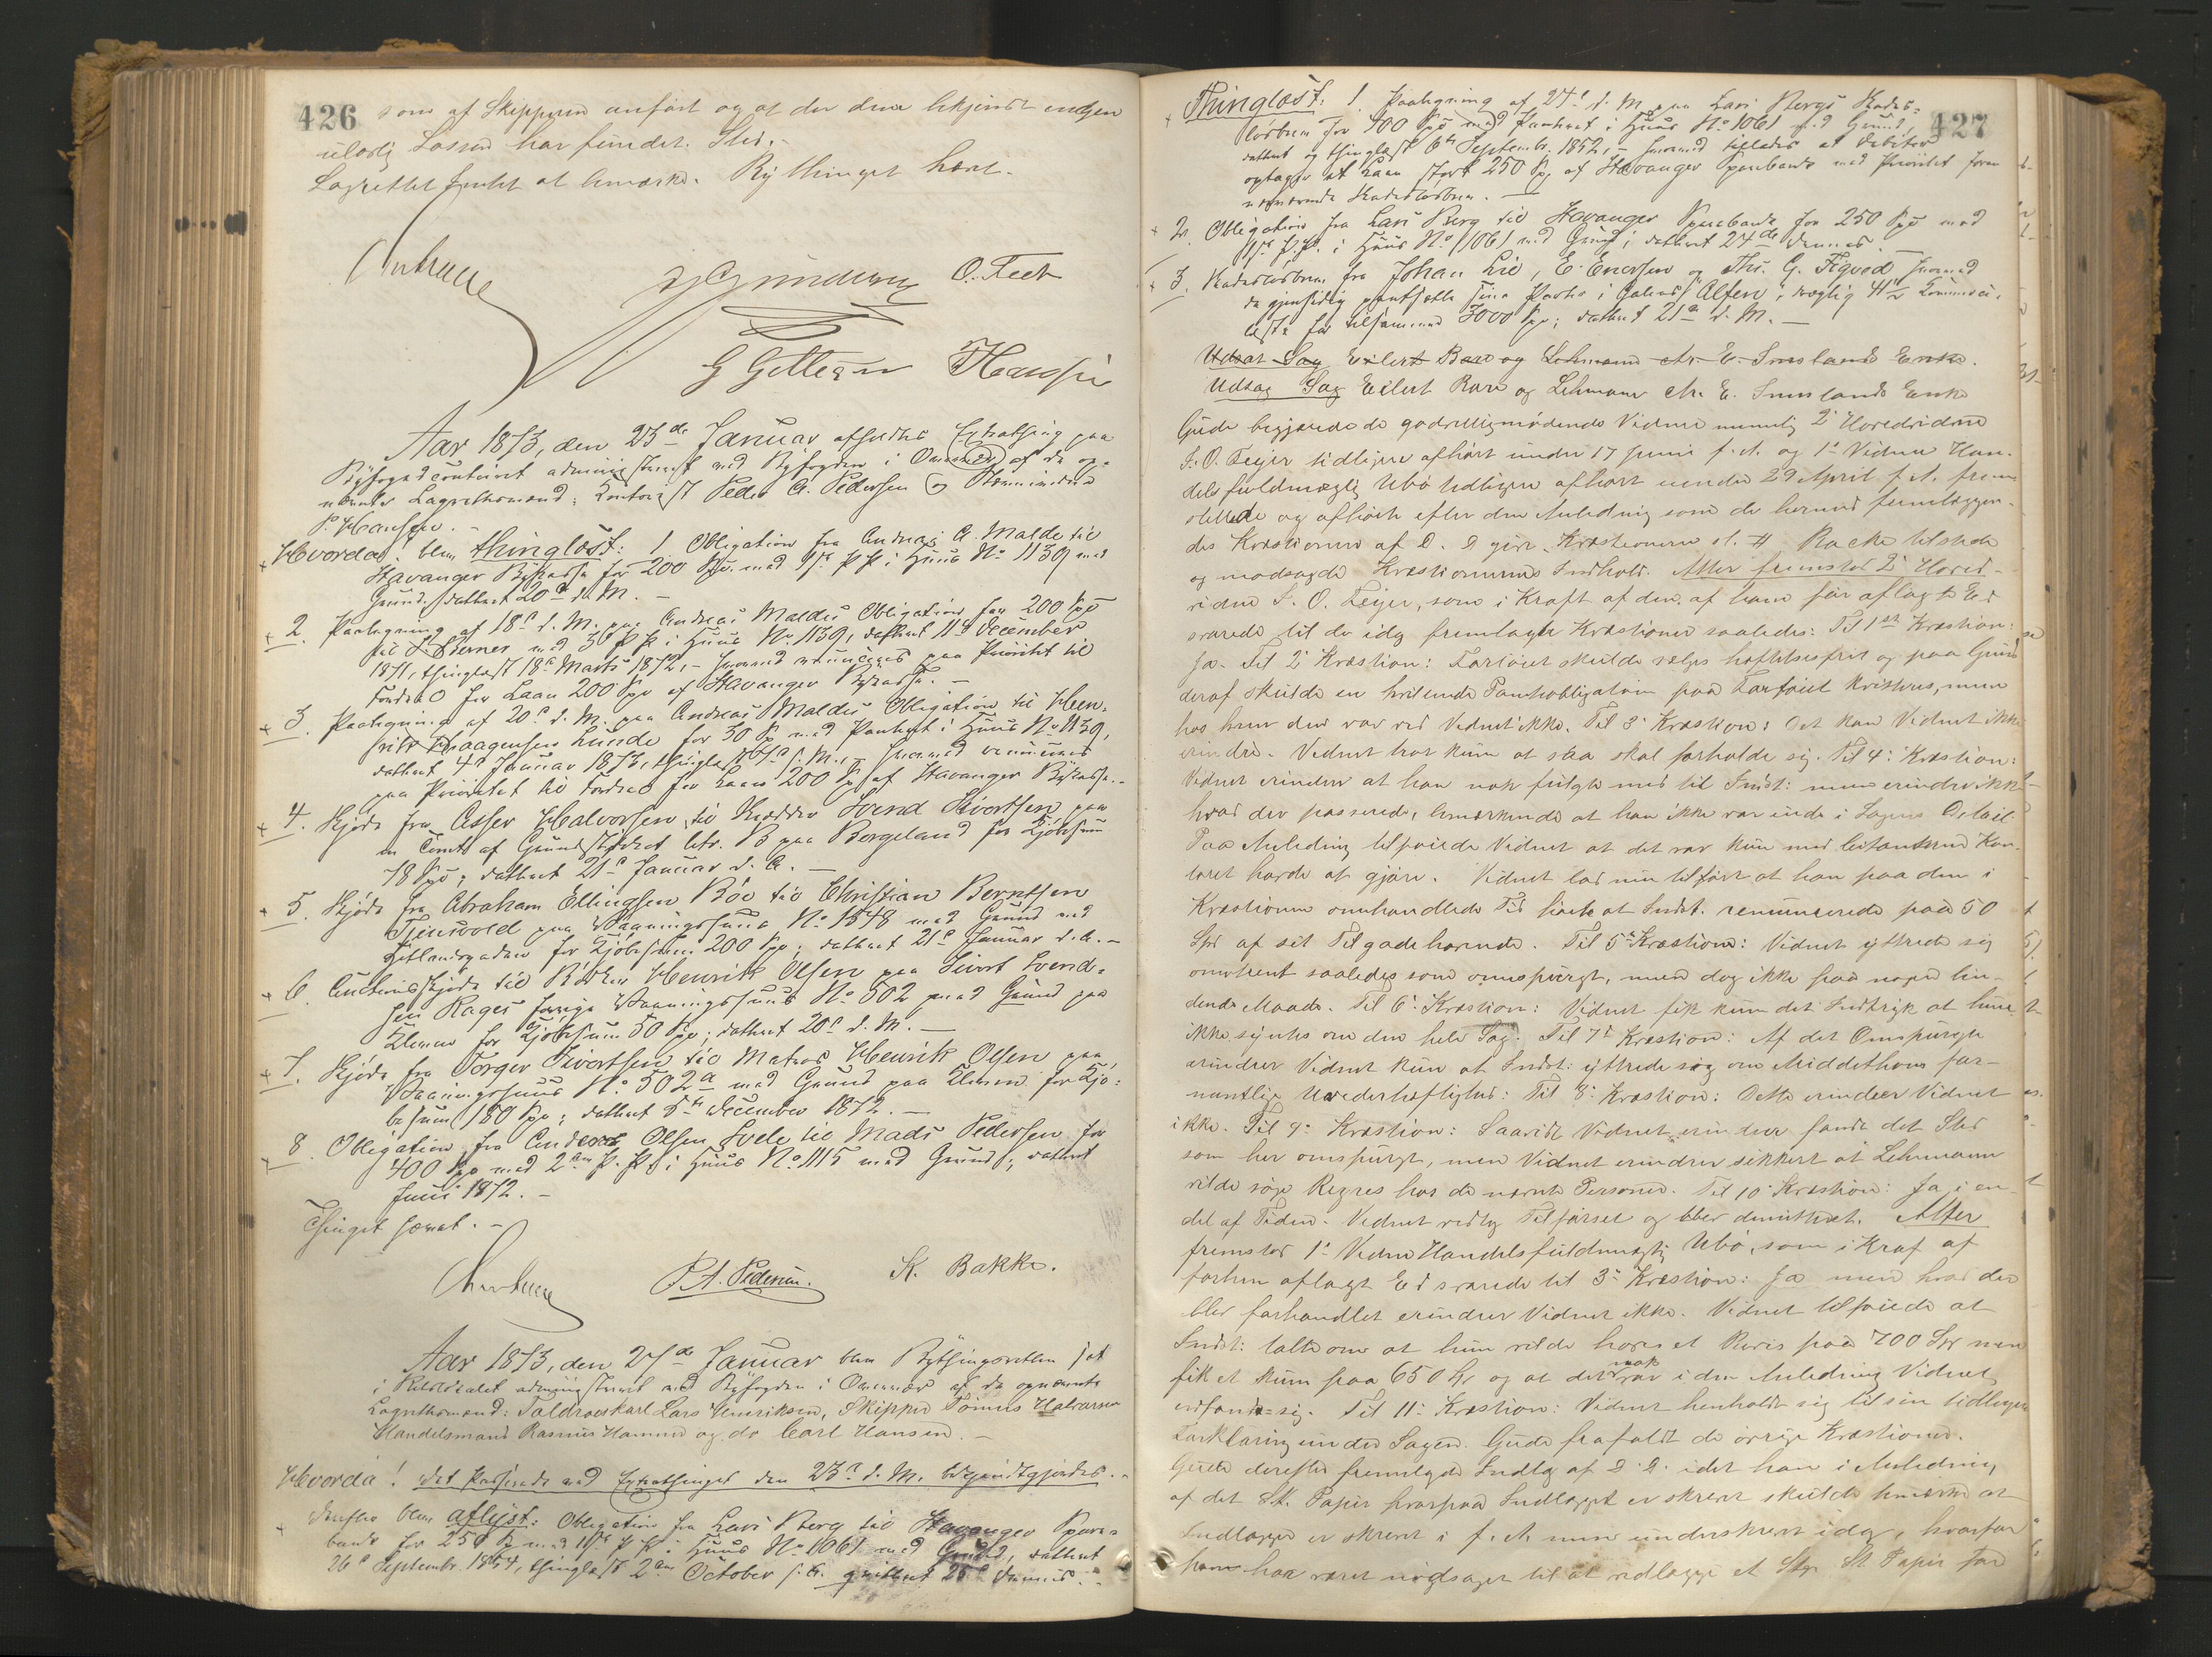 426
som af Skipperen anført og at der den bekjendt ingen
ulovlig Losson har fundet Sted.
Lagrettet fandt at bemærke. Bythinget hævet.
O. Feet
Aar 1873, den 23de Januar afholdtes Extrathing paa
Byfogedcontoiret administreret ved Byfogden i Overvær af de op-
nævnte Lagrettesmænd: Kontorist Peder A. Pedersen og
P. Hansen.
Hvorda! blev thinglæst: 1 Obligation fra Andreas A. Malde til
Stavanger Bykasse for 200 Spd. med 1ste P. Pt. i Huus No 1139 med
Grund, datteret 20de d. M. —
2. Paategning af 18de d. M. paa Andreas Maldes Obligation for 200 Spd
til Berner med 3de P. Pt. i Huus No 1139, datteret 11te December
1871, thinglæst 18de Marts 1872, – hvorved renunceres paa Prioritet til
Fordeel for Laan 200 Spd af Stavanger Bykasse. —
3. Paategning af 20de d. M. paa Andreas Maldes Obligation til Hen-
rik Haagensen Lunde for 30 Spd med Panteret i Huus No 1139,
datteret 4de Januar 1873, thinglæst d. M., – hvorved renunceres
paa Prioritet til Fordeel for Laan 200 Spd af Stavanger Bykasse. –
4. Skjøde fra Asser Halvorsen til Svend Sivertsen paa
en Tomt af Grundstykket Litr. B paa Borgeland for Kjøbesum
78 Spd; datteret 21de Januar d. A. —
5. Skjøde fra Abraham Ellingsen Bøe til Christian Berntsen
Tjensvold paa Vaaningshuus No 1548 med Grund ved
Hetlandsgaden for Kjøbesum 200 Spd; datteret 21de Januar d. A. –
6. Auctionsskjøde til Bødker Henrik Olsen paa Sivert Svend-
sen Rages forrige Vaaningshuus No 502 med Grund paa
for Kjøbesum 50 Spd; datteret 20de d. M. —
7. Skjøde fra Torger Sivertsen til Matros Henrik Olsen paa
Vaaningshuus No 502a med Grund paa for Kjø-
besum 180 Spd; datteret 5te December 1872. —
8. Obligation fra Anders Olsen til Mads Pedersen for
400 Spd med 2den P. Pt. i Huus No 1115 med Grund, datteret
Juni 1872. –
Thinget hævet. –
P. A. Pedersen. K. Bakke.
Aar 1873, den 27de Januar blev Bythingsretten sat
i Retslocalet administreret ved Byfogden i Overvær af de opnævnte
Lagrettesmænd: Toldroerskarl Lars Henriksen, Skipper Tønnes Halvorsen
Handelsmand Rasmus Hammer og do Carl Hansen. —
Hvorda! det Passerede ved Extrathinget den 23de d. M. bekjendtgjordes. –
Derefter blev aflyst: Obligation fra Lars Berg til Stavanger Spare-
bank for 250 Spd med 1ste P. Pt. i Huus No 1061 med Grund, datteret
26de Septembr. 1854, thinglæst 2den October s. A. qvitteret 25de dennes. –
427
Thinglæst: 1. Paategning af 24de d. M. paa Lars Bergs Skades-
løsbrev for 400 Spd med Panteret i Huus No 1061 med Grund
datteret og thinglæst 6te Septembr. 1852, – hvorved tillades at Debitor
optager et Laan stort 250 Spd af Stavanger Sparebank med Prioritet foran
nærværende Skadesløsbrev. —
2. Obligation fra Lars Berg til Stavanger Sparebank for 250 Spd med
1ste P. Pt. i Huus No 1061 med Grund; datteret 24de dennes. —
3. Skadesløsbrev fra Johan Lie, E. Enersen og Ths. G. Figved hvorved
de gjensidig pantsætte sine Parter i Galeas "Alfen", drægtig 41½ Commerce-
læster for tilsammen 3000 Spd; datteret 21de d. M. —
Udsat Sag Eilert Bore og Lehmann Mr. E. Imslands Enke.
Udsag Sag Eilert Bore og Lehmann Mr. E. Imslands Enke
Gude begjærede de godvilligmødende Vidner nemlig 2' Hovedvidne
F. O. Feyer tidligere afhørt under 17 Juni f. A. og 1' Vidne Han-
delsfuldmægtig Ubø tidligere afhørt under 29 April f. A. frem-
stillede og afhørte efter den Anledning som de herved fremlæggen-
des Kvæstioner af D. D give. Kvæstionerne st. H. Racke tilstede
og modsagde Kvæstionernes Indhold. Atter fremstod 2' Hoved-
vidne F. O. Feyer, som i Kraft af den af ham før aflagte Ed
svarede til de idag fremlagte Kvæstioner saaledes: Til 1ste Kvæstion:
Ja. Til 2' Kvæstion: Fartøiet skulde sælges heftelsesfrit og paa Grund
deraf skulde en hvilende Panteobligation paa Fartøiet kvitteres, men
hos hvem den var ved Vidnet ikke. Til 3' Kvæstion: Det kan Vidnet ikke
erindre. Vidnet tror kun at saa skal forholde sig. Til 4' Kvæstion:
Vidnet erindrer at han nok fulgte med til Indst: men erindrer ikke
hvad der passerede, bemærkende at han ikke var inde i Sagens Detail
Paa Anledning tilføiede Vidnet at det var kun med Kon-
toret havde at gjøre. Vidnet lod sig tilført at han paa den i
Kvæstionen omhandlede Tid hørte at Indst. renuncerede paa 50
Spd af sit Tilgodehavende. Til 5te Kvæstion: Vidnet yttrede sig
omtrent saaledes som omspurgt, men dog ikke paa nogen bin-
dende Maade. Til 6' Kvæstion: Vidnet fik kun det Indtryk at hun
ikke syntes om den hele Sag. Til 7de Kvæstion: Af det Omspurgte
erindrer Vidnet kun at Indst: yttrede sig om Middelthons for-
mentlige Uvederheftighed: Til 8' Kvæstion: Dette erindrer Vidnet
ikke. Til 9' Kvæstion: Saavidt Vidnet erindrer fandt det Sted
som her omspurgt, men Vidnet erindrer sikkert at Lehmann
vilde søge Regres hos de nævnte Personer. Til 10' Kvæstion: Ja, i en
del af Tiden. Vidnet vedtog Tilførsel og blev dimitteret. Atter
fremstod 1' Vidne Handelsfuldmægtig Ubø, som i Kraf af
forhen aflagt Ed svarede til 3' Kvæstion: Ja men hvad der
blev forhandlet erindrer Vidnet ikke. Vidnet tilføiede at
Indst: talte om at hun vilde have et Bevis paa 700 Spd men
fik et kun paa 650 Spd og at det nok var i den Anledning Vidnet
indfandt sig. Til 11' Kvæstion: Vidnet henholdt sig til sin tidligere
Forklaring under Sagen. Gude frafaldt de øvrige Kvæstioner.
Gude derefter fremlagde Indlæg af D. D. idet han i Anledning
af det St. Papir hvorpaa Indlægget er skrevet skulde bemærke at
Indlægget er skrevet i f. A. men underskrevet idag, hvorfor
han har været nødsaget til at vedlægge et Stp. St. Papir for